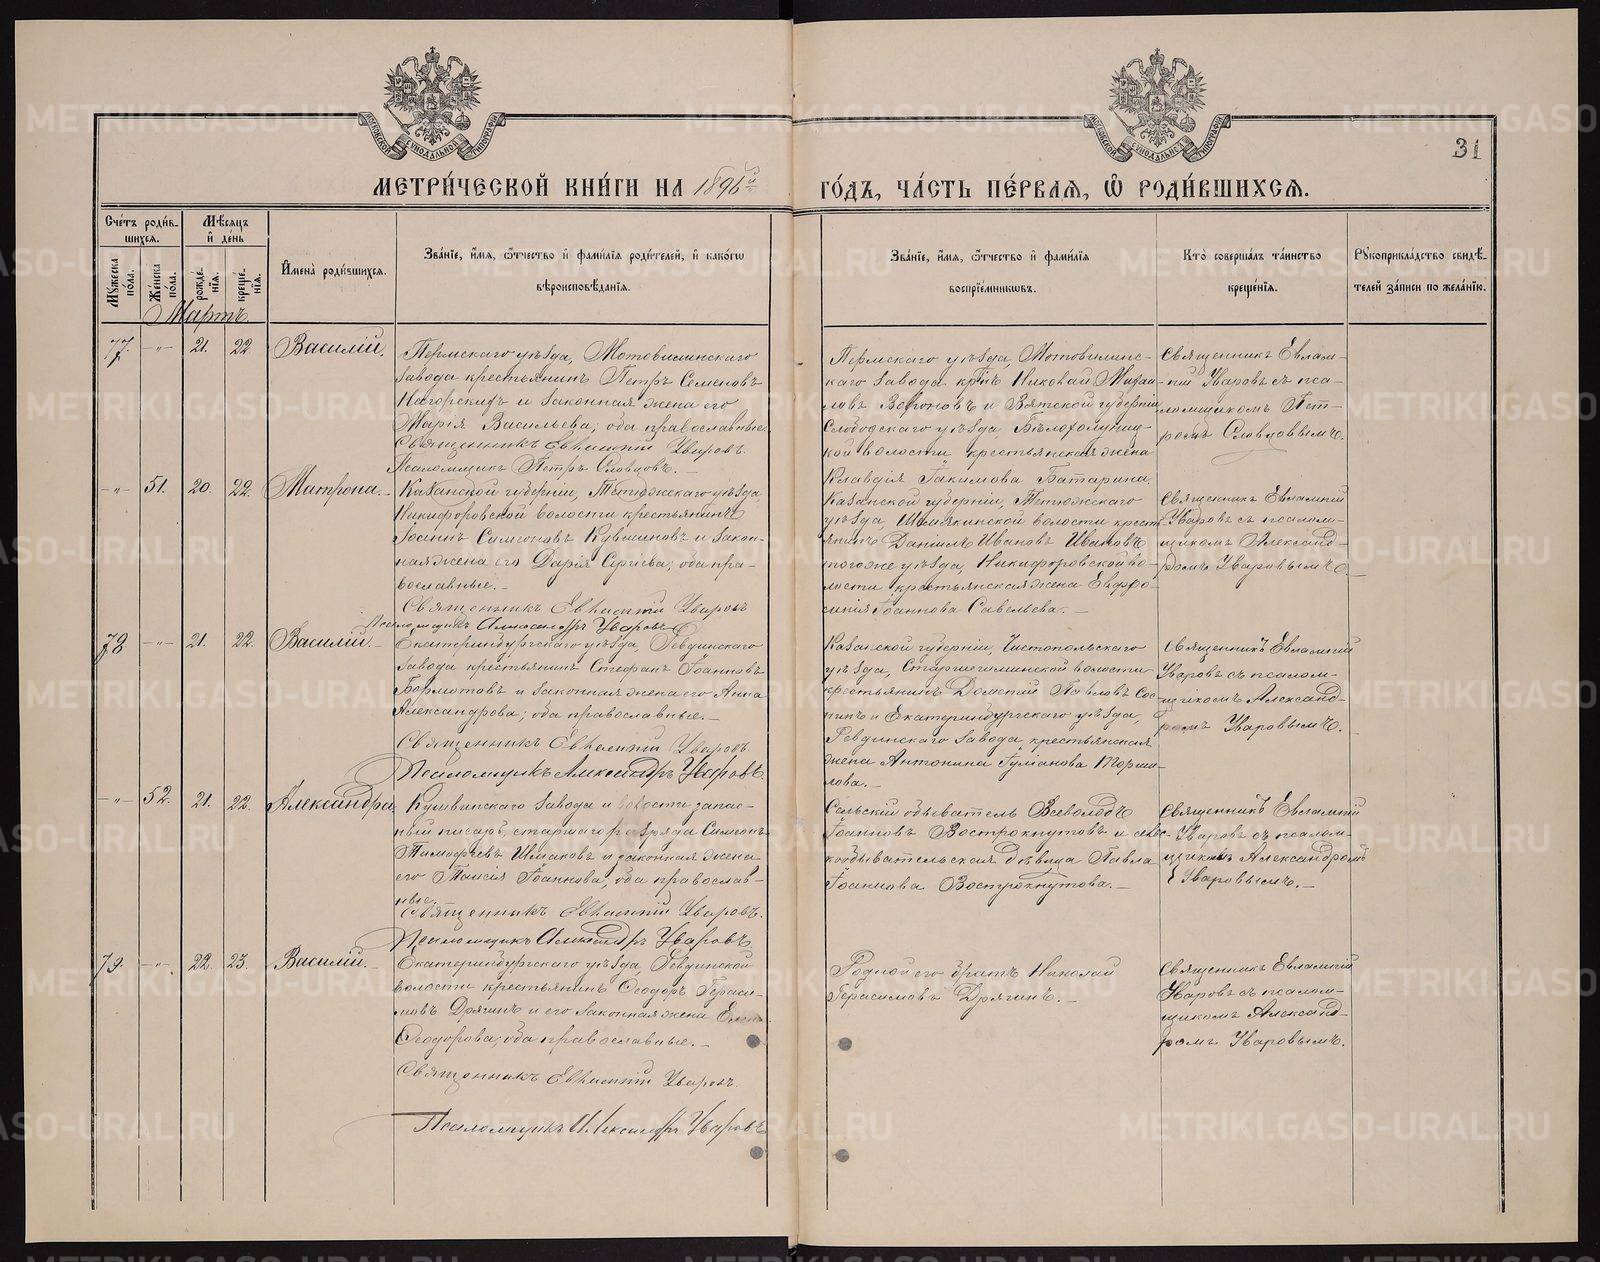 МОСКОВСКОЙ СУНОДАЛЬНОЙ ТИПОГРАФІИ
МОСКОВСКОЙ СУНОДАЛЬНОЙ ТИПОГРАФІИ
31
МЕТРИ́ЧЕСКОЙ КНИ́ГИ НА 1896й ГО́ДЪ, ЧА́СТЬ ПЕ́РВАѦ, Ѡ҆ РОДИ́ВШИХСѦ.
Сче́тъ роди́в-
шихся.
Мѣ́сяцъ
и҆ де́нь
Мꙋ́жеска по́ла.
Же́нска по́ла.
рожде́нїя.
креще́нїя.
И҆мена̀ роди́вшихся.
Зва́нїе, и҆́мя, ѻ҆́тчество и҆ фами́лїя роди́телей, и҆ како́гѡ
вѣроисповѣ́данїя.
Зва́нїе, и҆́мя, ѻ҆́тчество и҆ фами́лїя
воспрїе́мникѡвъ.
Кто̀ соверша́лъ та́инство
креще́нїя.
Рꙋкоприкла́дство свидѣ́-
телей за́писи по жела́нїю.
Мартъ.
77. -"- 21. 22 Василій.
Пермскаго уѣзда, Мотовилинскаго
завода крестьянинъ Петръ Семеновъ
Нагорскихъ и законная жена его
Марія Васильева; оба православные.
Священникъ Евлампій Уваровъ.
Псаломщикъ Петръ Словцовъ.
Пермскаго уѣзда, Мотовилинс-
каго завода кр. Николай Михаи-
ловъ Вороновъ и Вятской губерніи,
Слободскаго уѣзда, Бѣлохолуниц-
кой волости крестьянская жена
Клавдія Іакимова Батарина.
Священникъ Евлам-
пій Уваровъ съ пса-
ломщикомъ Пет-
ромъ Словцовымъ.
-"- 51. 20. 22. Матрона.
Казанской губерніи, Тетюжскаго уѣзда,
Никифоровской волости крестьянинъ
Іоаннъ Симеоновъ Кувшиновъ и закон-
ная жена его Дарія Сергіева; оба пра-
вославные.
Священникъ Евлампій Уваровъ
Псаломщикъ Александръ Уваровъ
Казанской губерніи, Тетюжскаго
уѣзда, Шемякинской волости кресть-
янинъ Даніилъ Ивановъ Ивановъ
тогоже уѣзда, Никифоровской во-
лости крестьянская жена Евфро-
синія Іоаннова Савельева.
Священникъ Евлампій
Уваровъ съ псалом-
щикомъ Александ-
ромъ Уваровымъ.
78 -"- 21. 22. Василій.
Екатеринбургскаго уѣзда, Ревдинскаго
завода крестьянинъ Стефанъ Іоанновъ
Бормотовъ и законная жена его Анна
Александрова; оба православные.
Священникъ Евлампій Уваровъ
Псаломщикъ Александръ Уваровъ.
Казанской губерніи, Чистопольскаго
уѣзда, волости
крестьянинъ Павловъ Сос-
нинъ и Екатеринбургскаго уѣзда,
Ревдинскаго завода, крестьянская
жена Антонина
лова.
Священникъ Евлампій
Уваровъ съ псалом-
щикомъ Александ-
ромъ Уваровымъ.
-"- 52. 21. 22. Александра
Кушвинскаго завода и волости запас-
ный писарь, старшаго разряда Симеонъ
Тимофеевъ Шмаковъ и законная жена
его Таисія Іоаннова, оба православ-
ные.
Священникъ Евлампій Уваровъ.
Псаломщикъ Александръ Уваровъ
Сельскій обыватель Всеволодъ
Іоанновъ Вострокнутовъ и сельс-
кообывательская дѣвица Павла
Іоаннова Вострокнутова.
Священникъ Евлампій
Уваровъ съ псалом-
щикомъ Александромъ
Уваровымъ.
79. -"- 22. 23. Василій.
Екатеринбургскаго уѣзда, Ревдинской
волости крестьянинъ Ѳеодоръ Гераси-
мовъ Дрягинъ и его законная жена Елена
Ѳеодорова; оба православные.
Священникъ Евлампій Уваровъ.
Псаломщикъ Александръ Уваровъ
Родной его братъ Николай
Герасимовъ Дрягинъ.
Священникъ Евлампій
Уваровъ съ псалом-
щикомъ Александ-
ромъ Уваровымъ.
METRIKI.GASO-URAL.RU